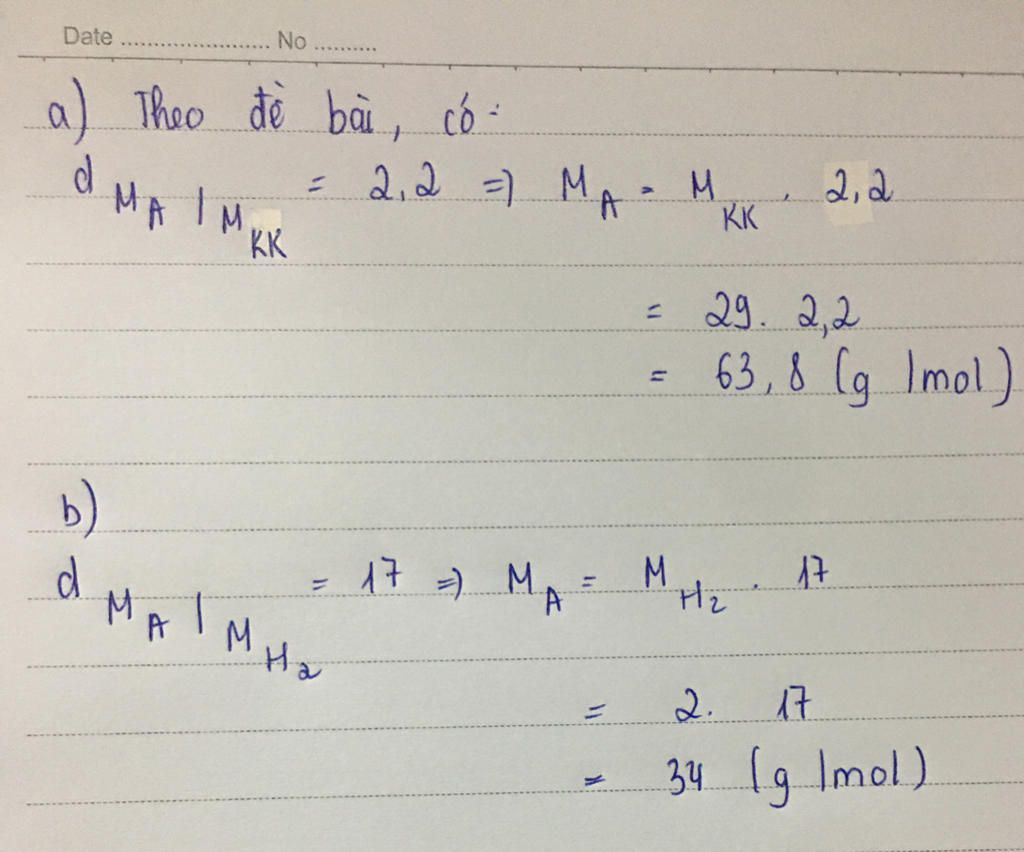 Date ...................... No ..........
a) Theo đề bài, có:
d M_A / M_KK = 2,2 => M_A = M_KK . 2,2
= 29. 2,2
= 63,8 (g/mol)
b)
d M_A / M_H_2 = 17 => M_A = M_H_2 . 17
= 2. 17
= 34 (g/mol)